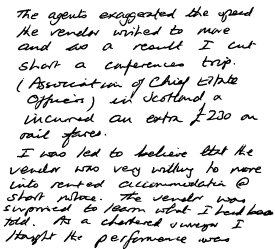 The agents exaggerated the speed
the vendor wished to move
and as a result I cut
short a conference trip.
(Association of Chief Estate
Officers) in Scotland &
incurred an extra £230 on
rail fares.
I was led to believe that the
vendor was very willing to move
into rented accommodation @
short notice. The vendor was
surprised to learn what I had been
told. As a chartered surveyor I
thought the performance was